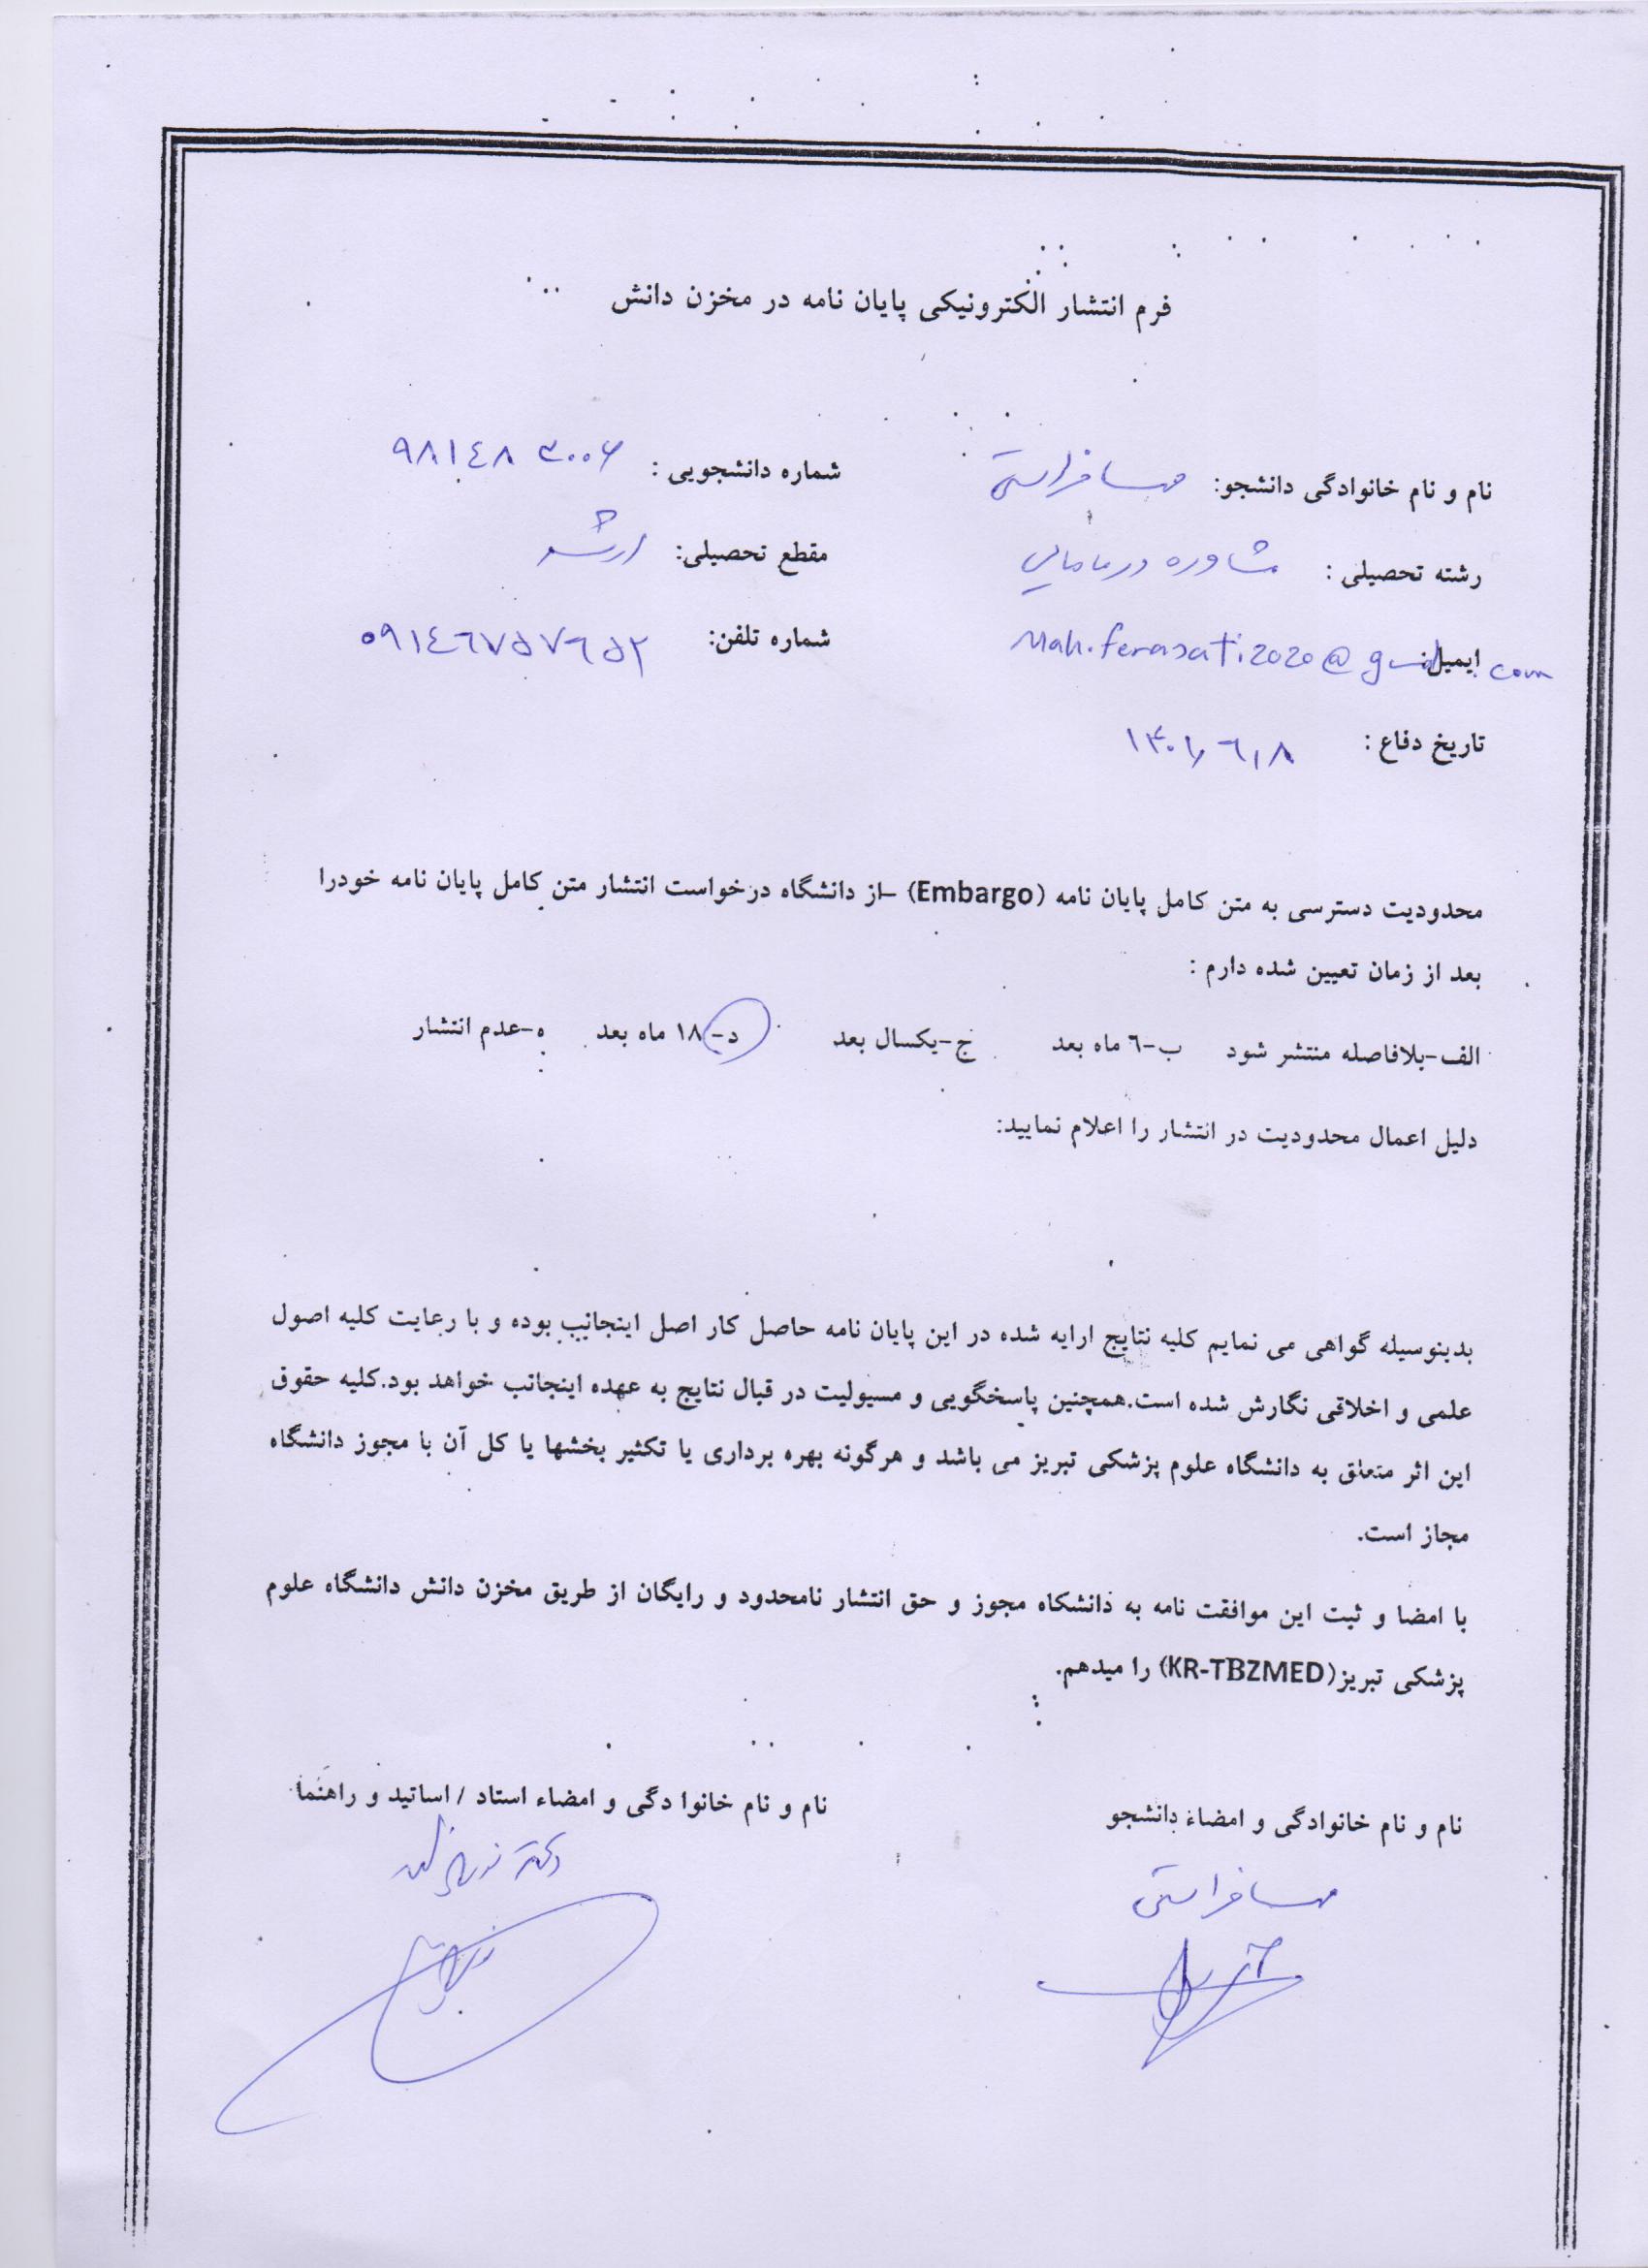 فرم انتشار الکترونیکی پایان نامه در مخزن دانش
نام و نام خانوادگی دانشجو: مهسا فراستی شماره دانشجویی : ۹۸۱٤۸۳۰۰۶
رشته تحصیلی : مشاوره در مامایی مقطع تحصیلی: ارشد
ایمیل: Mah.ferasati2020@gmail.com شماره تلفن: ۰۹۱٤٦۷۵۷٦۵۲
تاریخ دفاع : ۱۴۰۱٫٦٫۸
محدودیت دسترسی به متن کامل پایان نامه (Embargo) –از دانشگاه درخواست انتشار متن کامل پایان نامه خودرا
بعد از زمان تعیین شده دارم :
الف-بلافاصله منتشر شود ب-٦ ماه بعد ج-یکسال بعد د-۱۸ ماه بعد ه-عدم انتشار
دلیل اعمال محدودیت در انتشار را اعلام نمایید:
بدینوسیله گواهی می نمایم کلیه نتایج ارایه شده در این پایان نامه حاصل کار اصل اینجانب بوده و با رعایت کلیه اصول
علمی و اخلاقی نگارش شده است.همچنین پاسخگویی و مسیولیت در قبال نتایج به عهده اینجانب خواهد بود.کلیه حقوق
این اثر متعلق به دانشگاه علوم پزشکی تبریز می باشد و هرگونه بهره برداری یا تکثیر بخشها یا کل آن با مجوز دانشگاه
مجاز است.
با امضا و ثبت این موافقت نامه به دانشکاه مجوز و حق انتشار نامحدود و رایگان از طریق مخزن دانش دانشگاه علوم
پزشکی تبریز(KR-TBZMED) را میدهم.
نام و نام خانوادگی و امضاء دانشجو نام و نام خانوا دگی و امضاء استاد / اساتید و راهنما
مهسا فراستی دکتر